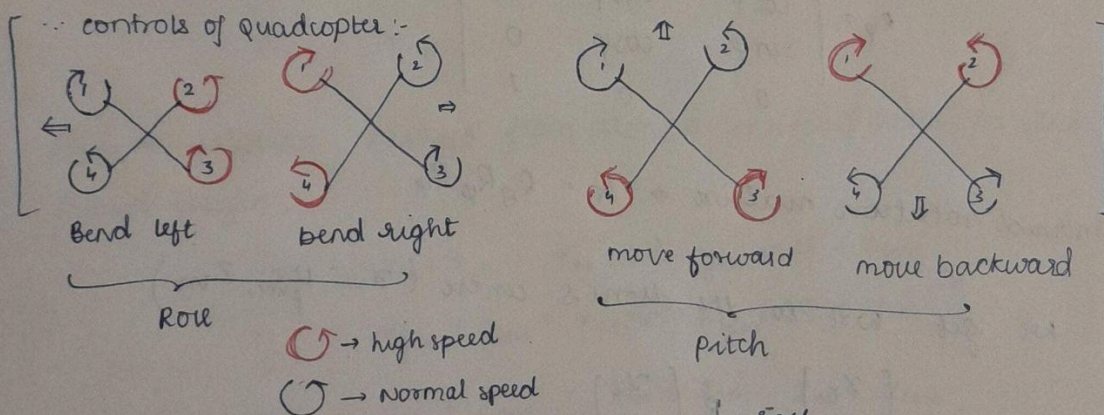 controls of Quadcopter :-
1 2
4 3
Bend left
1 2
4 3
bend right
Roll
1 2
4 3
move forward
1 2
4 3
move backward
Pitch
→ high speed
→ Normal speed